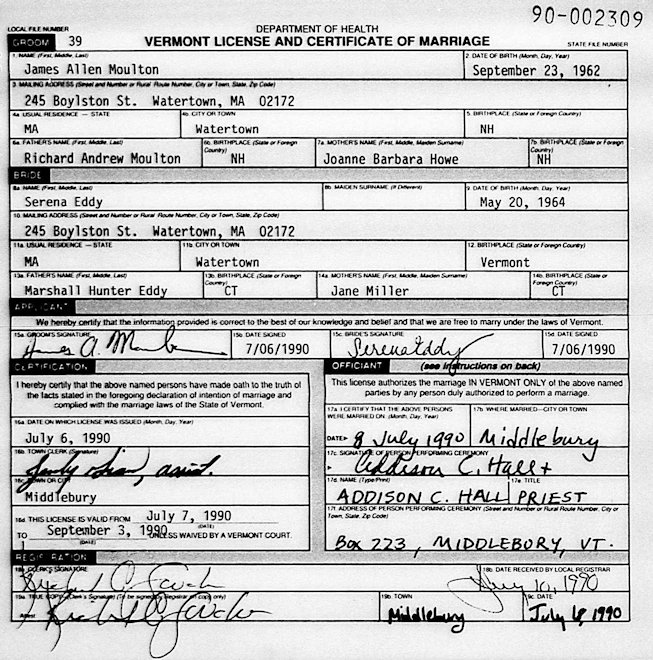 90-002309
LOCAL FILE NUMBER
DEPARTMENT OF HEALTH
GROOM 39 VERMONT LICENSE AND CERTIFICATE OF MARRIAGE STATE FILE NUMBER
1. NAME (First, Middle, Last) 2. DATE OF BIRTH (Month, Day, Year)
James Allen Moulton September 23, 1962
3. MAILING ADDRESS (Street and Number or Rural Route Number, City or Town, State, Zip Code)
245 Boylston St. Watertown, MA 02172
4a. USUAL RESIDENCE — STATE 4b. CITY OR TOWN 5. BIRTHPLACE (State or Foreign Country)
MA Watertown NH
6a. FATHER'S NAME (First, Middle, Last) 6b. BIRTHPLACE (State or Foreign Country) 7a. MOTHER'S NAME (First, Middle, Maiden Surname) 7b. BIRTHPLACE (State or Foreign Country)
Richard Andrew Moulton NH Joanne Barbara Howe NH
BRIDE
8a. NAME (First, Middle, Last) 8b. MAIDEN SURNAME (If Different) 9. DATE OF BIRTH (Month, Day, Year)
Serena Eddy May 20, 1964
10. MAILING ADDRESS (Street and Number or Rural Route Number, City or Town, State, Zip Code)
245 Boylston St. Watertown, MA 02172
11a. USUAL RESIDENCE — STATE 11b. CITY OR TOWN 12. BIRTHPLACE (State or Foreign Country)
MA Watertown Vermont
13a. FATHER'S NAME (First, Middle, Last) 13b. BIRTHPLACE (State or Foreign Country) 14a. MOTHER'S NAME (First, Middle, Maiden Surname) 14b. BIRTHPLACE (State or Foreign Country)
Marshall Hunter Eddy CT Jane Miller CT
APPLICANT
We hereby certify that the information provided is correct to the best of our knowledge and belief and that we are free to marry under the laws of Vermont.
15a. GROOM'S SIGNATURE 15b. DATE SIGNED 15c. BRIDE'S SIGNATURE 15d. DATE SIGNED
James A. Moulton 7/06/1990 Serena Eddy 7/06/1990
CERTIFICATION
I hereby certify that the above named persons have made oath to the truth of
the facts stated in the foregoing declaration of intention of marriage and
complied with the marriage laws of the State of Vermont.
16a. DATE ON WHICH LICENSE WAS ISSUED (Month, Day, Year)
July 6, 1990
16b. TOWN CLERK (Signature)
asist.
16c. TOWN OR CITY
Middlebury
16d. THIS LICENSE IS VALID FROM July 7, 1990
(DATE)
TO September 3, 1990 UNLESS WAIVED BY A VERMONT COURT.
(DATE)
OFFICIANT (see instructions on back)
This license authorizes the marriage IN VERMONT ONLY of the above named
parties by any person duly authorized to perform a marriage.
17a. I CERTIFY THAT THE ABOVE PERSONS WERE MARRIED ON: (Month, Day, Year) 17b. WHERE MARRIED—CITY OR TOWN
DATE▸ 8 July 1990 Middlebury
17c. SIGNATURE OF PERSON PERFORMING CEREMONY
Addison C. Hall +
17d. NAME (Type/Print) 17e. TITLE
ADDISON C. HALL PRIEST
17f. ADDRESS OF PERSON PERFORMING CEREMONY (Street and Number or Rural Route Number, City or Town, State, Zip Code)
BOX 223, MIDDLEBORY, VT.
REGISTRATION
18a. CLERK'S SIGNATURE 18b. DATE RECEIVED BY LOCAL REGISTRAR
July 10, 1990
19a. TRUE COPY (Clerk's Signature) (To be signed by registrar on copy only) 19b. TOWN 19c. DATE
Attest Middlebury July 1990